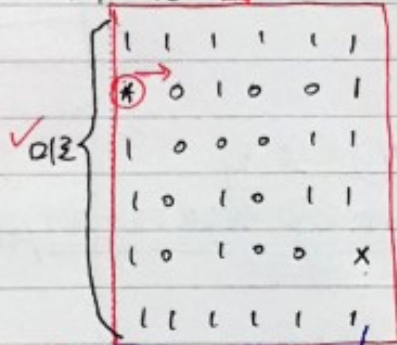 1 1 1 1 1 1
* → 0 1 0 0 1
미로
1 0 0 0 1 1
1 0 1 0 1 1
1 0 1 0 0 X
1 1 1 1 1 1